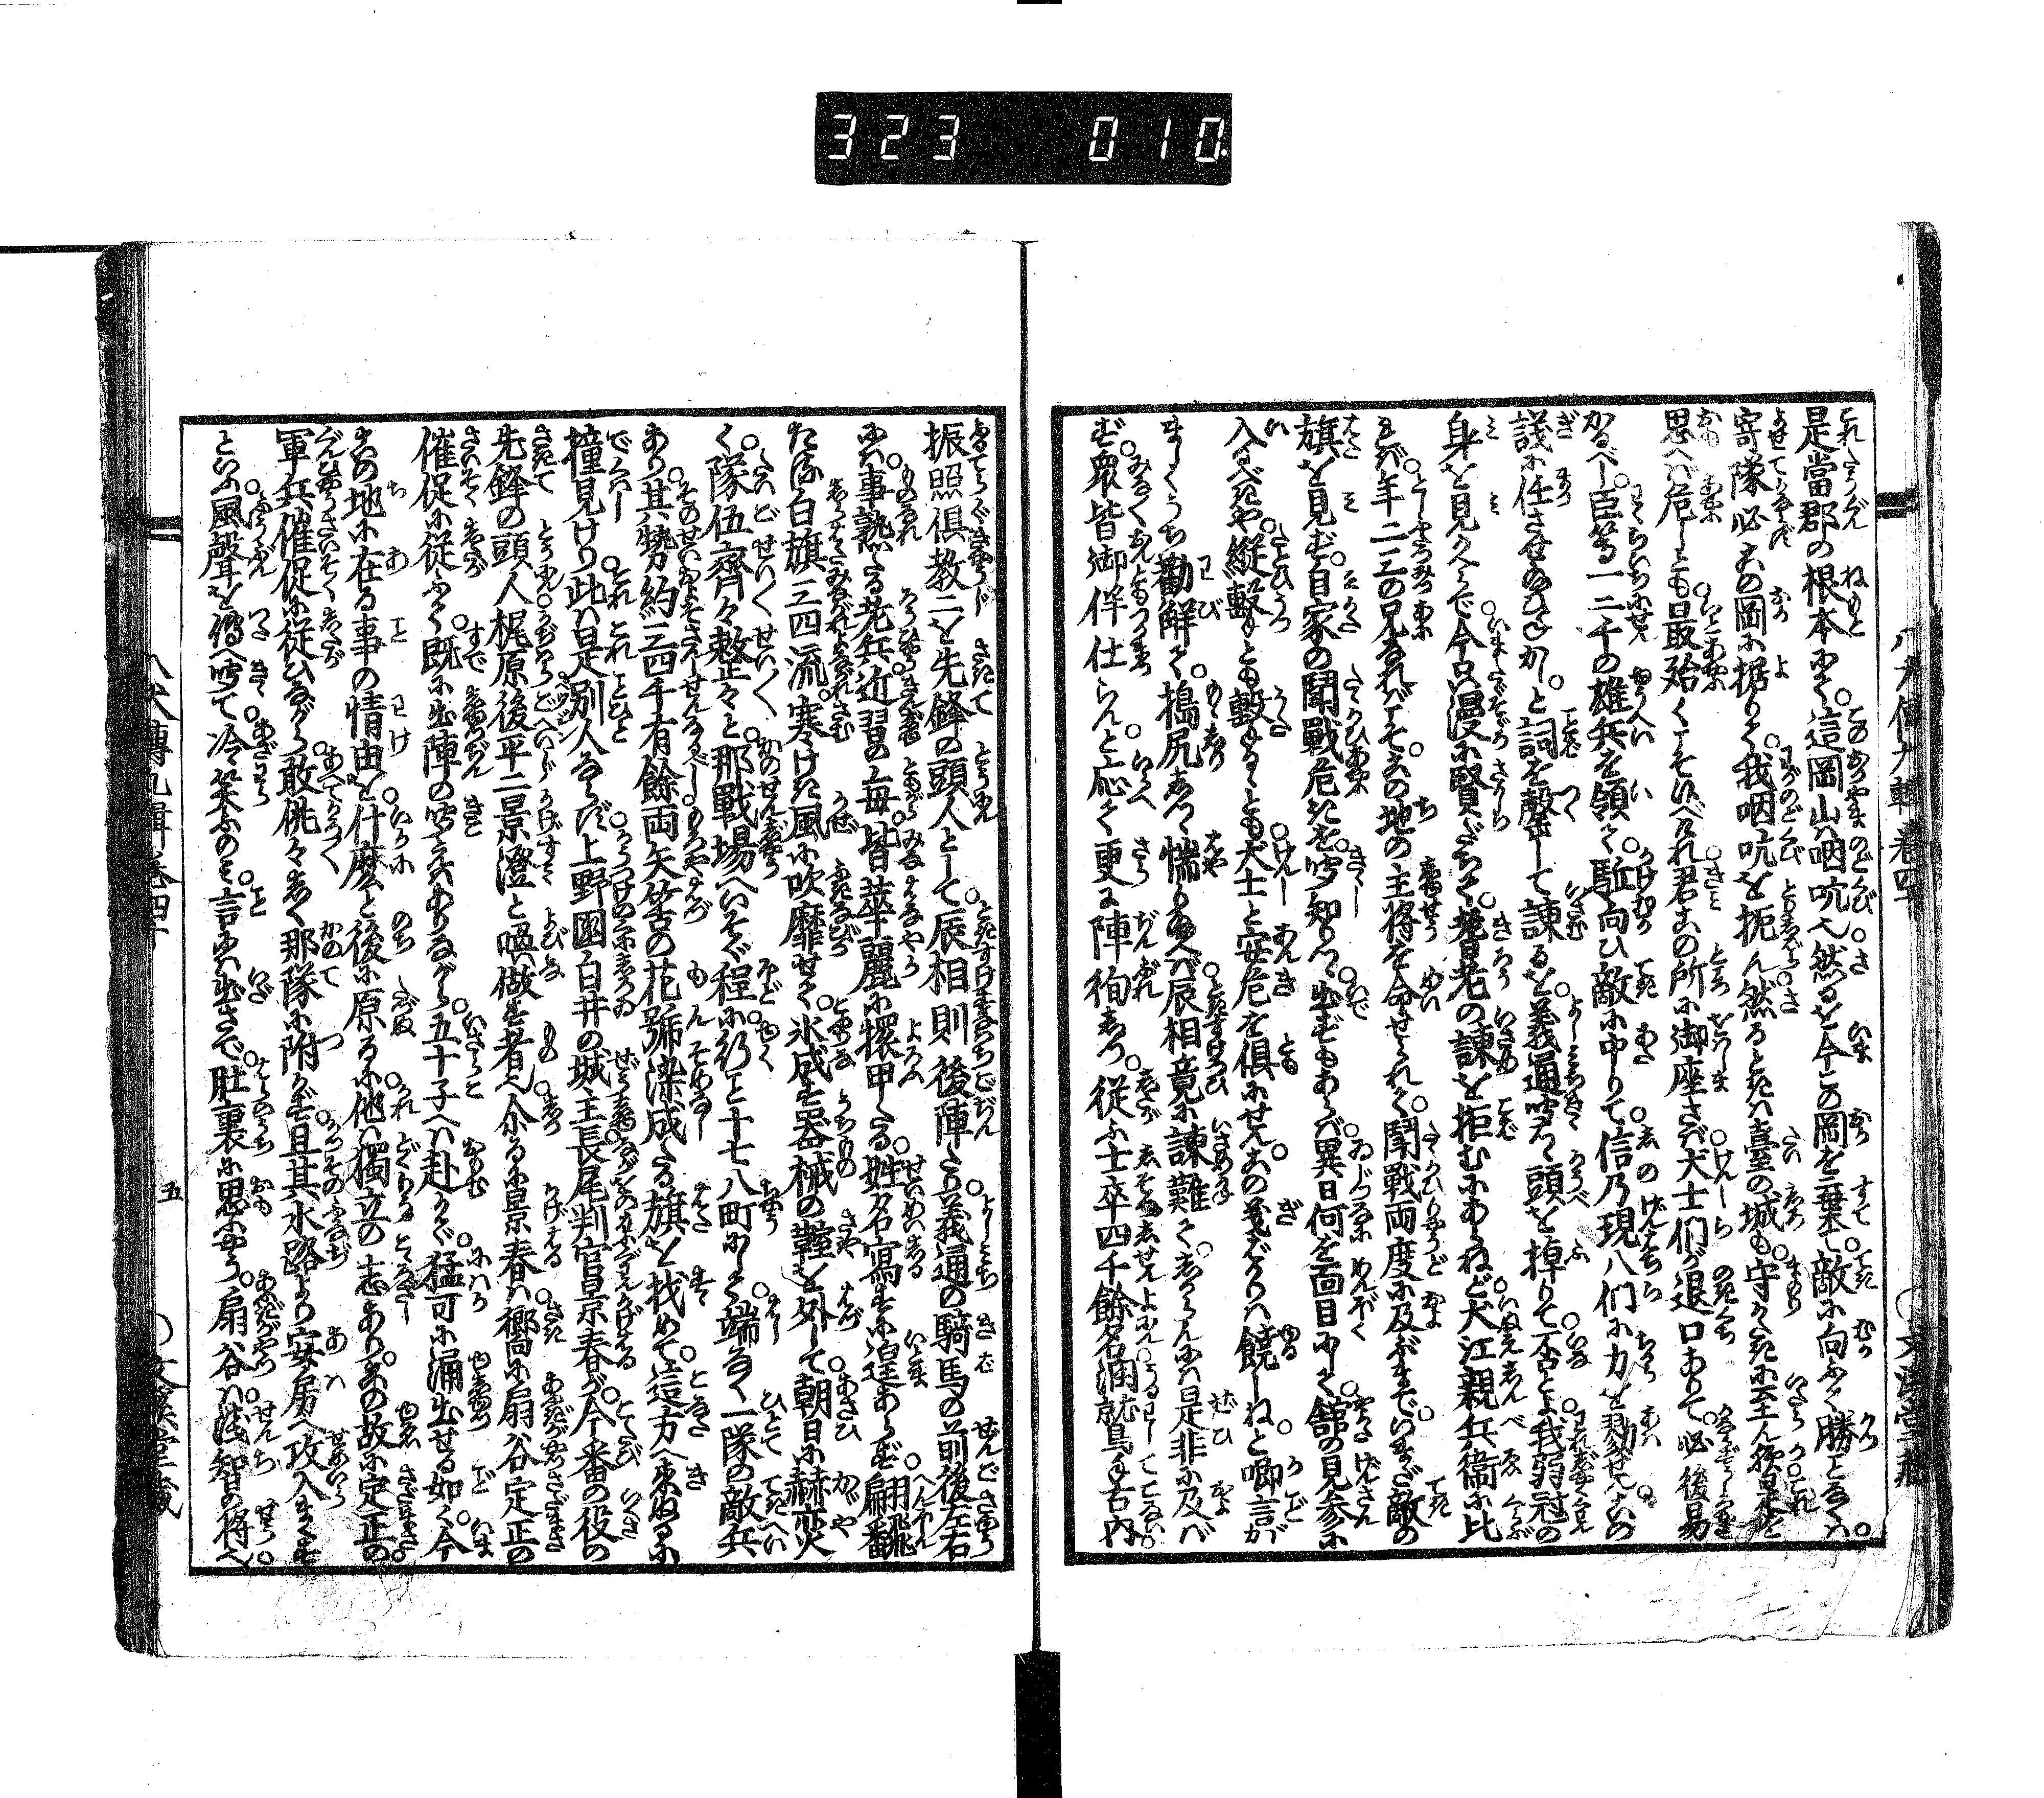 323 010
八犬傳九輯巻四十
是當郡の根本にて這岡山ハ咽吭也然るを今この岡を棄て敵に向ふて勝ことなくハ
寄隊必この岡に据りて我咽吭を扼ん然るときハ臺の城も守りがたきに至ん後是を
思へバ危しとも最殆くこそ侍べれ君この所に御座さバ犬士們が退口ありて必後易
かるべし臣等一二千の雄兵を領て駈向ひ敵に中りて信乃現八們に力を勠せんこの
議に任させ給ひねかしと詞を盡して諫るを義通聞て頭を掉りて否とよ我弱冠の
身を見かへらで今只漫に賢だちて耆老の諫を拒むにあらねど犬江親兵衛に比
れバ年二三の兄なれバこそこの地の主将を命せられて鬪戰両度に及ぶまでいまだ敵の
旗を見ず自家の鬪戰危きを聞知りつゝ出ずもあらバ異日何を面目にして舘の見参に
入るべきや縦撃とも撃るゝとも犬士と安危を倶にせんこの義ばかりハ饒しねと喞言が
ましくうち勸解て搗尻あへず惴り給へバ辰相竟に諫難てしからんにハ是非に及バ
ず衆皆御伴仕らんと応て更に陣徇しつ従ふ士卒四千餘名潤鷲手古内
振照倶教二を先鋒の頭人として辰相則後陣たり義通の騎馬の前後左右
にハ事熟たる老兵近習の毎皆華麗に擐甲たる姓名寫すに遑あらず扁翻
たる白旗三四流寒けき風に吹靡せて氷成す器械の鞘を外して朝日に赫奕
く隊伍齊々整々と那戰場へいそぐ程に約こと十七八町にして端なく一隊の敵兵
あり其勢約三四千有餘両矢筈の花號染成たる旗を找めて這方へ来ぬるに
撞見けり此ハ是別人ならず上野國白井の城主長尾判官景春が今番の役の
先鋒の頭人梶原後平二景澄と喚做す者也余るに景春ハ嚮に扇谷定正の
催促に従ふて既に出陣の聞えハありながら五十子へハ赴かで猛可に涌出せる如く今
この地に在る事の情由を什麼と後に原るに他ハ獨立の志ありこの故に定正の
軍兵催促に従ひながら敢佻々しく那隊に附かず且其水路より安房へ攻入まくす
といふ風聲を傳へ聞て冷笑ふのミ言にハ出さで肚裏に思ふやう扇谷ハ淺智の将也
八犬傳九輯巻四十
五